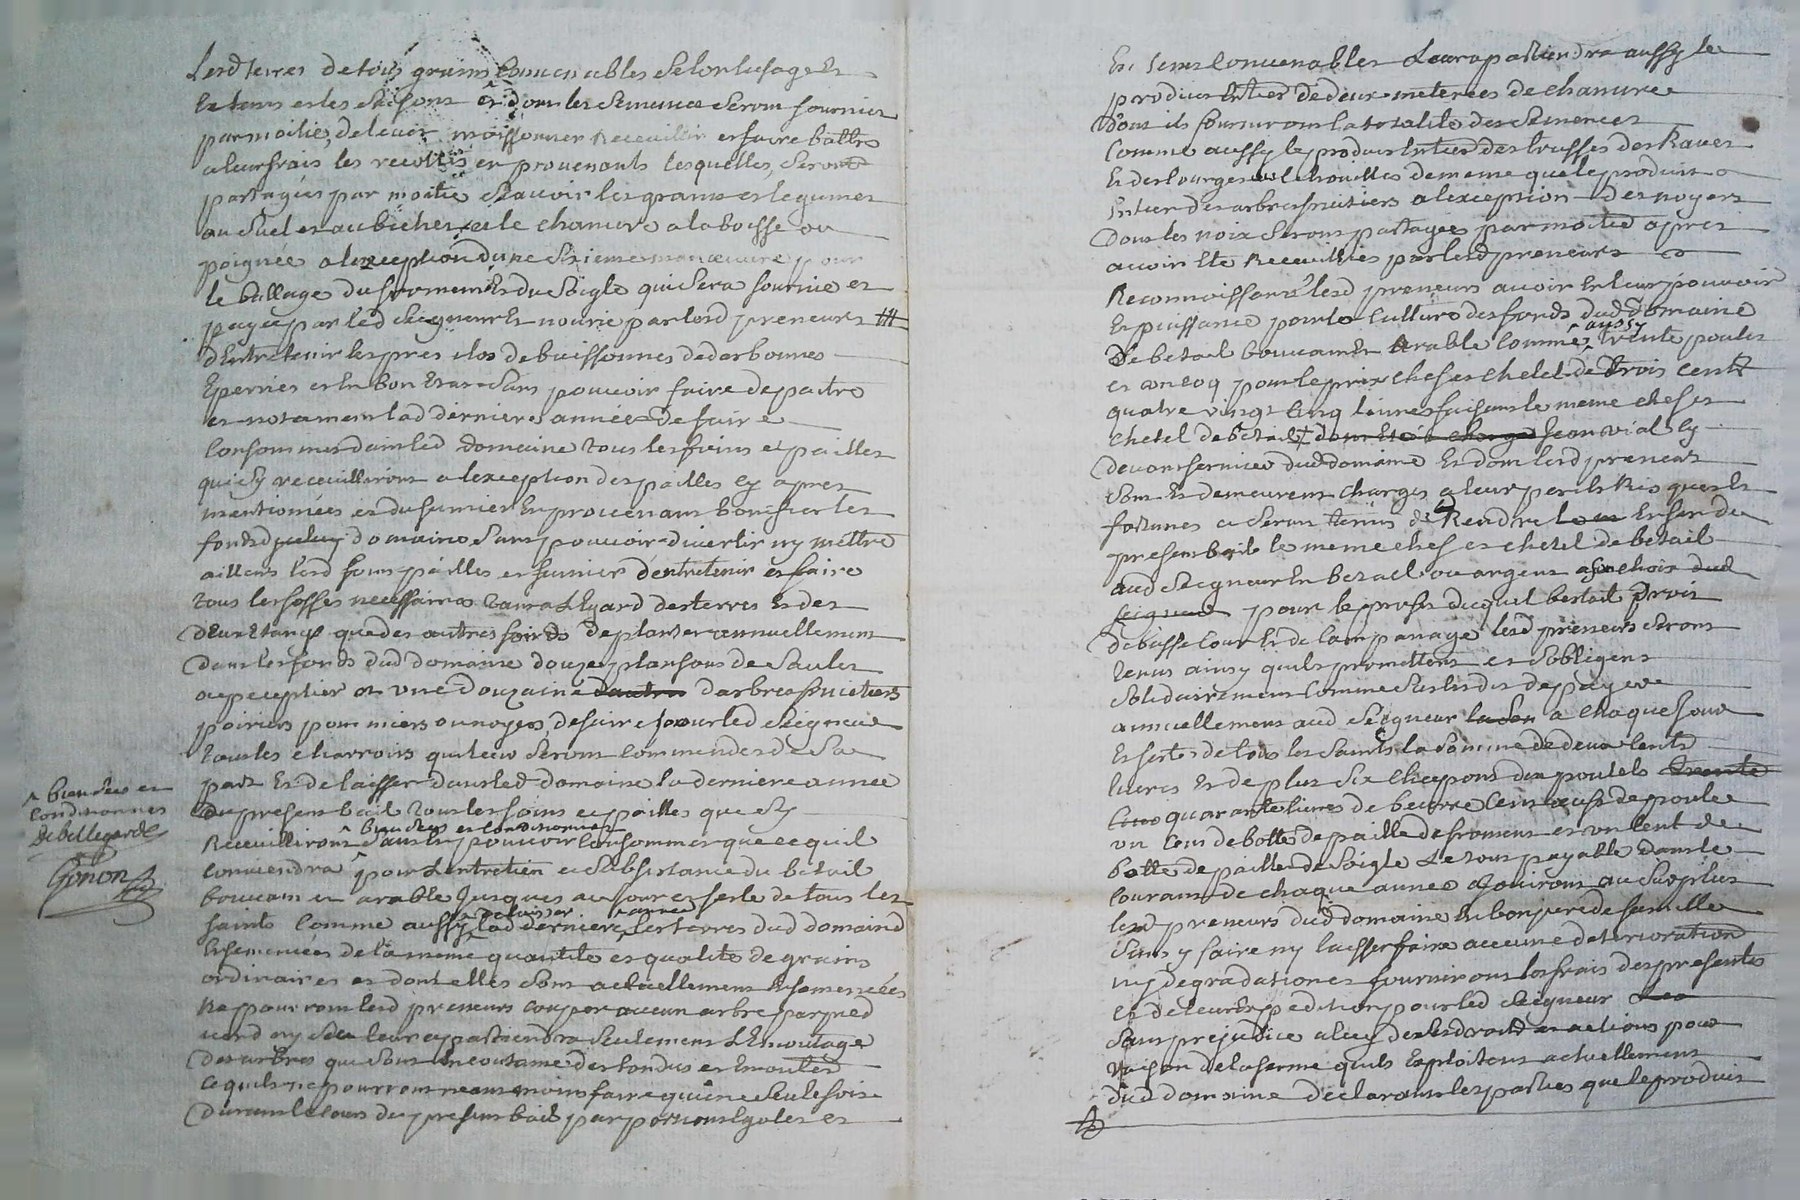 Lesd terres de tous grains convenables selon lusage et
et tems et les saisons et dont les semence seront fournies
par moities, de lever moissonner receuillir et faire battre
a leur frais les recoltes en provenants lesquelles, seront
partagées par moitie scavoir les grains et legumes
au suel et au bichet, et le chanvre a la bosse ou
poignée a lexception dune sixieme manoeuvre pour
le battage du froment et du seigle qui sera fournie et
payée par led seigneur et nourie par lesd preneurs
dentretenir les pres clos de buissonnes dedarbonnes
eperriés et en bon etat sans pouvoir faire depaitre
et notament lad derniere année de faire
consommer dans led domaine tous les foins et pailles
qui sy receuilliront a lexception des pailles cy apres
mentionées et du fumier en provenant bonifier les
fonds dud domaine sans pouvoir divertir ny mettre
ailleurs lesd foins pailles et fumier dentretenir et faire
tous les fosses necessaires tant a legard des terres et des
deux etangs que des autres fonds de planter annuellement
dans les fonds dud domaine douze plansons de saules
ou peuplier et une douzaine dautres darbres fruictiers
poiriers pommiers ou noyers, de faire pour led seigneur
tous les charrois qui leur seront commendes de sa
part et de laisser dans led domaine la derniere année
du present bail tous les foins et pailles que sy
receuilliront ^ bien secs et conditionnes sans en pouvoir consommer que ce quil
conviendra pour lentretien et subsistance du betail
boucain et arable jusques au jour et feste de tous les
saints comme aussy de laisser lad derniere année les terres dud domaine
ensemencées de la meme quantite et qualite de grains
ordinaires et dont elles sont actuellement ensemencées
ne pourront lesd preneurs couper aucun arbre par pied
verd ny sec leur appartiendra seulement lemoutage
des arbres qui sont en coutume destondus et emoutés
ce quils ne pourront neanmoins faire quune seule fois
durant le cours du present bail par portions egales et
^ bien secs et
conditionnes
De bellegarde
Gonon
en tems convenables leur apartiendra aussy le
produit entier de deux meterées de chanvre
dont ils fourniront la totalite des semences
comme aussy le produit entier des truffes des raves
et des courges et citrouilles de meme que le produit
entier des arbres fruitiers a lexception des noyers
dont les noix seront partagées par moitié apres
avoir ete receuillies par lesd preneurs
Reconnoissant lesd preneurs avoir en leur pouvoir
et puissance pour la culture des fonds dud domaine
de betail boucain et arable comme aussy trente poules
et un coq pour le prix chef et chetel de trois cent
quatre vingt cinq livres faisant le meme chef et
chetel de betail dont etoit chargé Jean vial cy
devant fermier dud domaine et dont lesd preneurs
sont et demeurent charges a leur perils risques et
fortunes et seront tenus de rendre en fin du
present bail le meme chef et chetel de betail
aud seigneur en betail ou argent a son choix dud
seigneur pour le profit duquel bestail droit
de basse cour et de campanage lesd preneurs seront
tenus ainsy quils promettent et sobligent
solidairement comme susledit de payer
annuellement aud seigneur a chaque jour
et feste de tous les saints la somme de deux cents
livres et de plus six chappons dix poulets trente
quarante livres de beurre cent oeufs de poule
un cent de botte de paille de froment et un cent de
botte de paille de seigle le tout payable dans le
courant de chaque année Jouiront au surplus
lesd preneurs dud domaine en bon pere de famille
sans y faire ny laisser faire aucune deterioration
ny degradation et fourniront les frais des presentes
et de leur expedition pour led seigneur
sans prejudice a luy de ses droits et actions pour
raison de la ferme quils exploitent actuellement
dud domaine declarant les parties que le produit